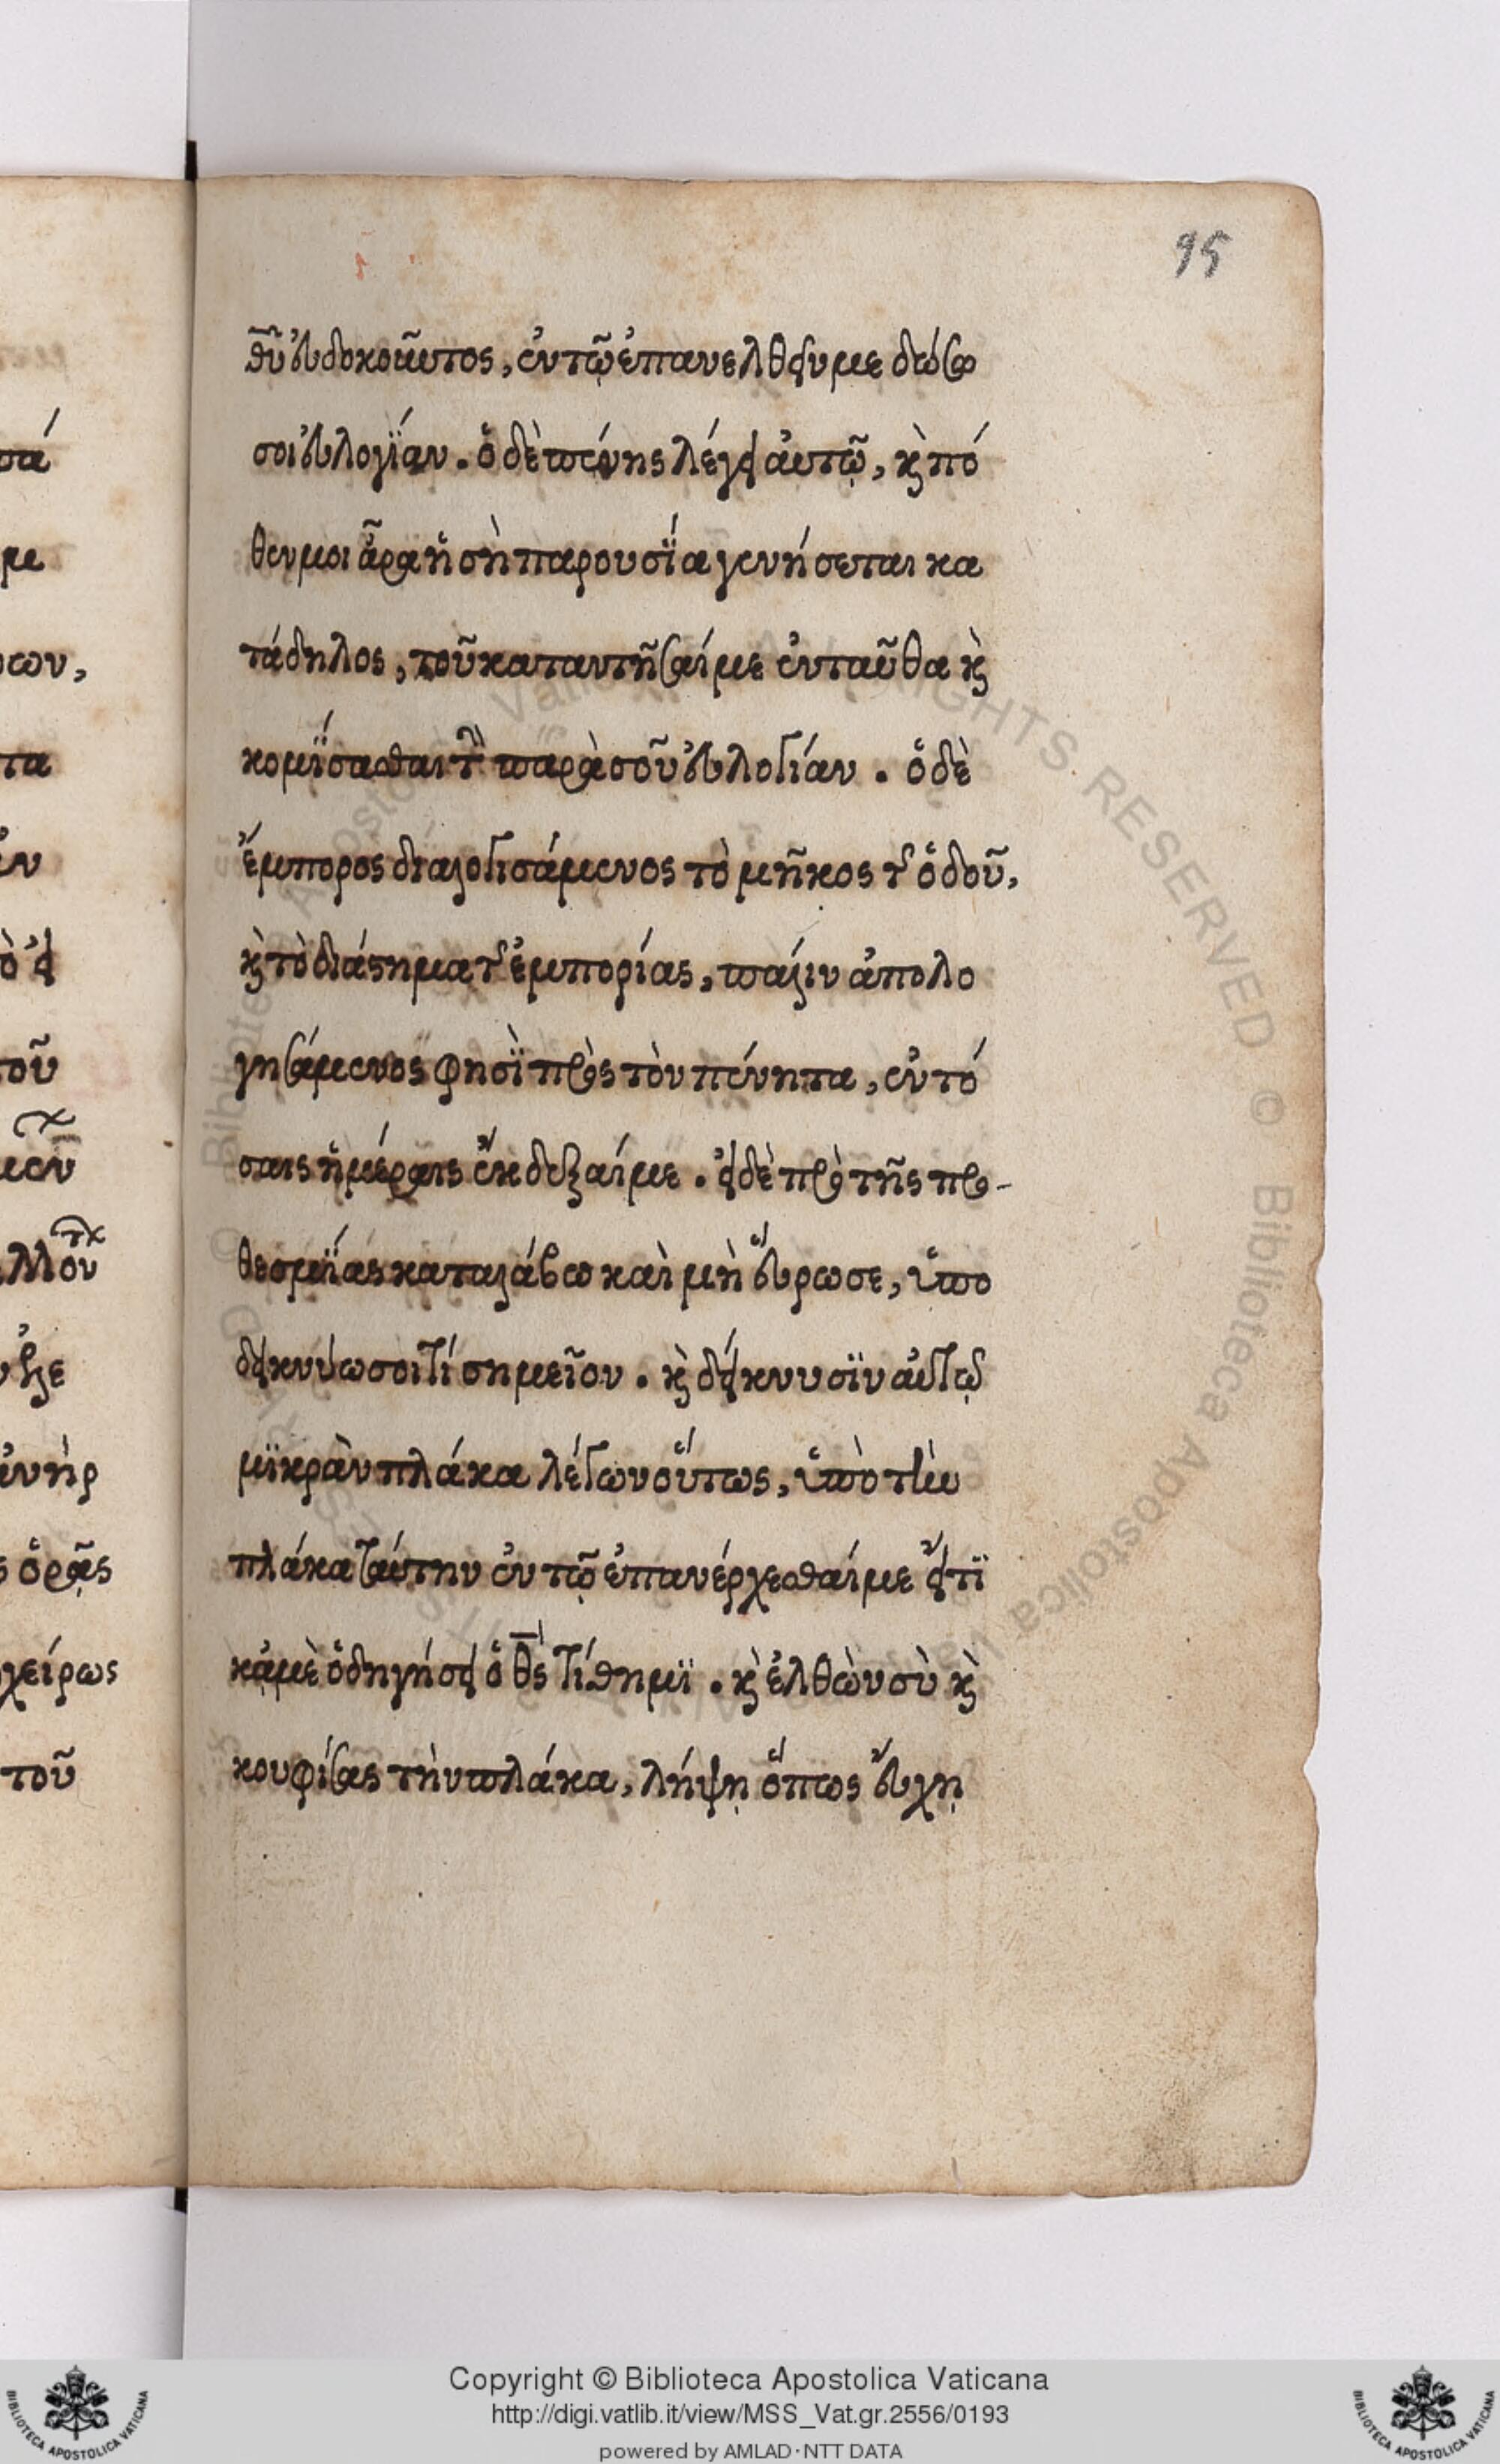 95
θῦ εὐδοκοῦντος, ἐν τῷ ἐπανελθεῖν με δώσω
σοι εὐλογΐαν. ὁ δὲ πένης λέγει αὐτῷ, κὶ πό
θεν μοι ἆρα ἡ σὴ παρουσΐα γενήσεται κα
τάδηλος, τοῦ καταντῆσαί με ἐνταῦθα κὶ
κομΐσασθαι τὴν παρὰ σοῦ εὐλογίαν. ὁ δὲ
ἔμπορος διαλογισάμενος τὸ μῆκος τῆς ὁδοῦ,
κὶ τὸ διάστημα τῆς ἐμπορίας, πάλιν ἀπολο
γησάμενος φησῒ πρὸς τὸν πένητα, ἐν τό
σαις ἡμέραις ἔκδεξαί με. εἰ δὲ πρὸ τῆς προ-
θεσμΐας καταλάβω καὶ μὴ εὕρω σε, ὑπο
δεικνύω σοι τί σημεῖον. κὶ δείκνυσϊν αὐτῷ
μϊκρὰν πλάκα λέγων οὕτως, ὑπὸ τὴν
πλάκα ταύτην ἐν τῷ ἐπανέρχεσθαί με εἴ τϊ
κἀμὲ ὁδηγήσει ὁ θς τίθημϊ. κὶ ἐλθὼν σὺ κὶ
κουφίσας τὴν πλάκα, λήψῃ ὅπως εὔχῃ
πά
με
των,
τα
ὸ εἰ
τοῦ
ἀνὴρ
ς ὁρᾷς
χείρως
τοῦ
Copyright © Biblioteca Apostolica Vaticana
http://digi.vatlib.it/view/MSS_Vat.gr.2556/0193
powered by AMLAD·NTT DATA
BIBLIOTECA APOSTOLICA VATICANA
BIBLIOTECA APOSTOLICA VATICANA